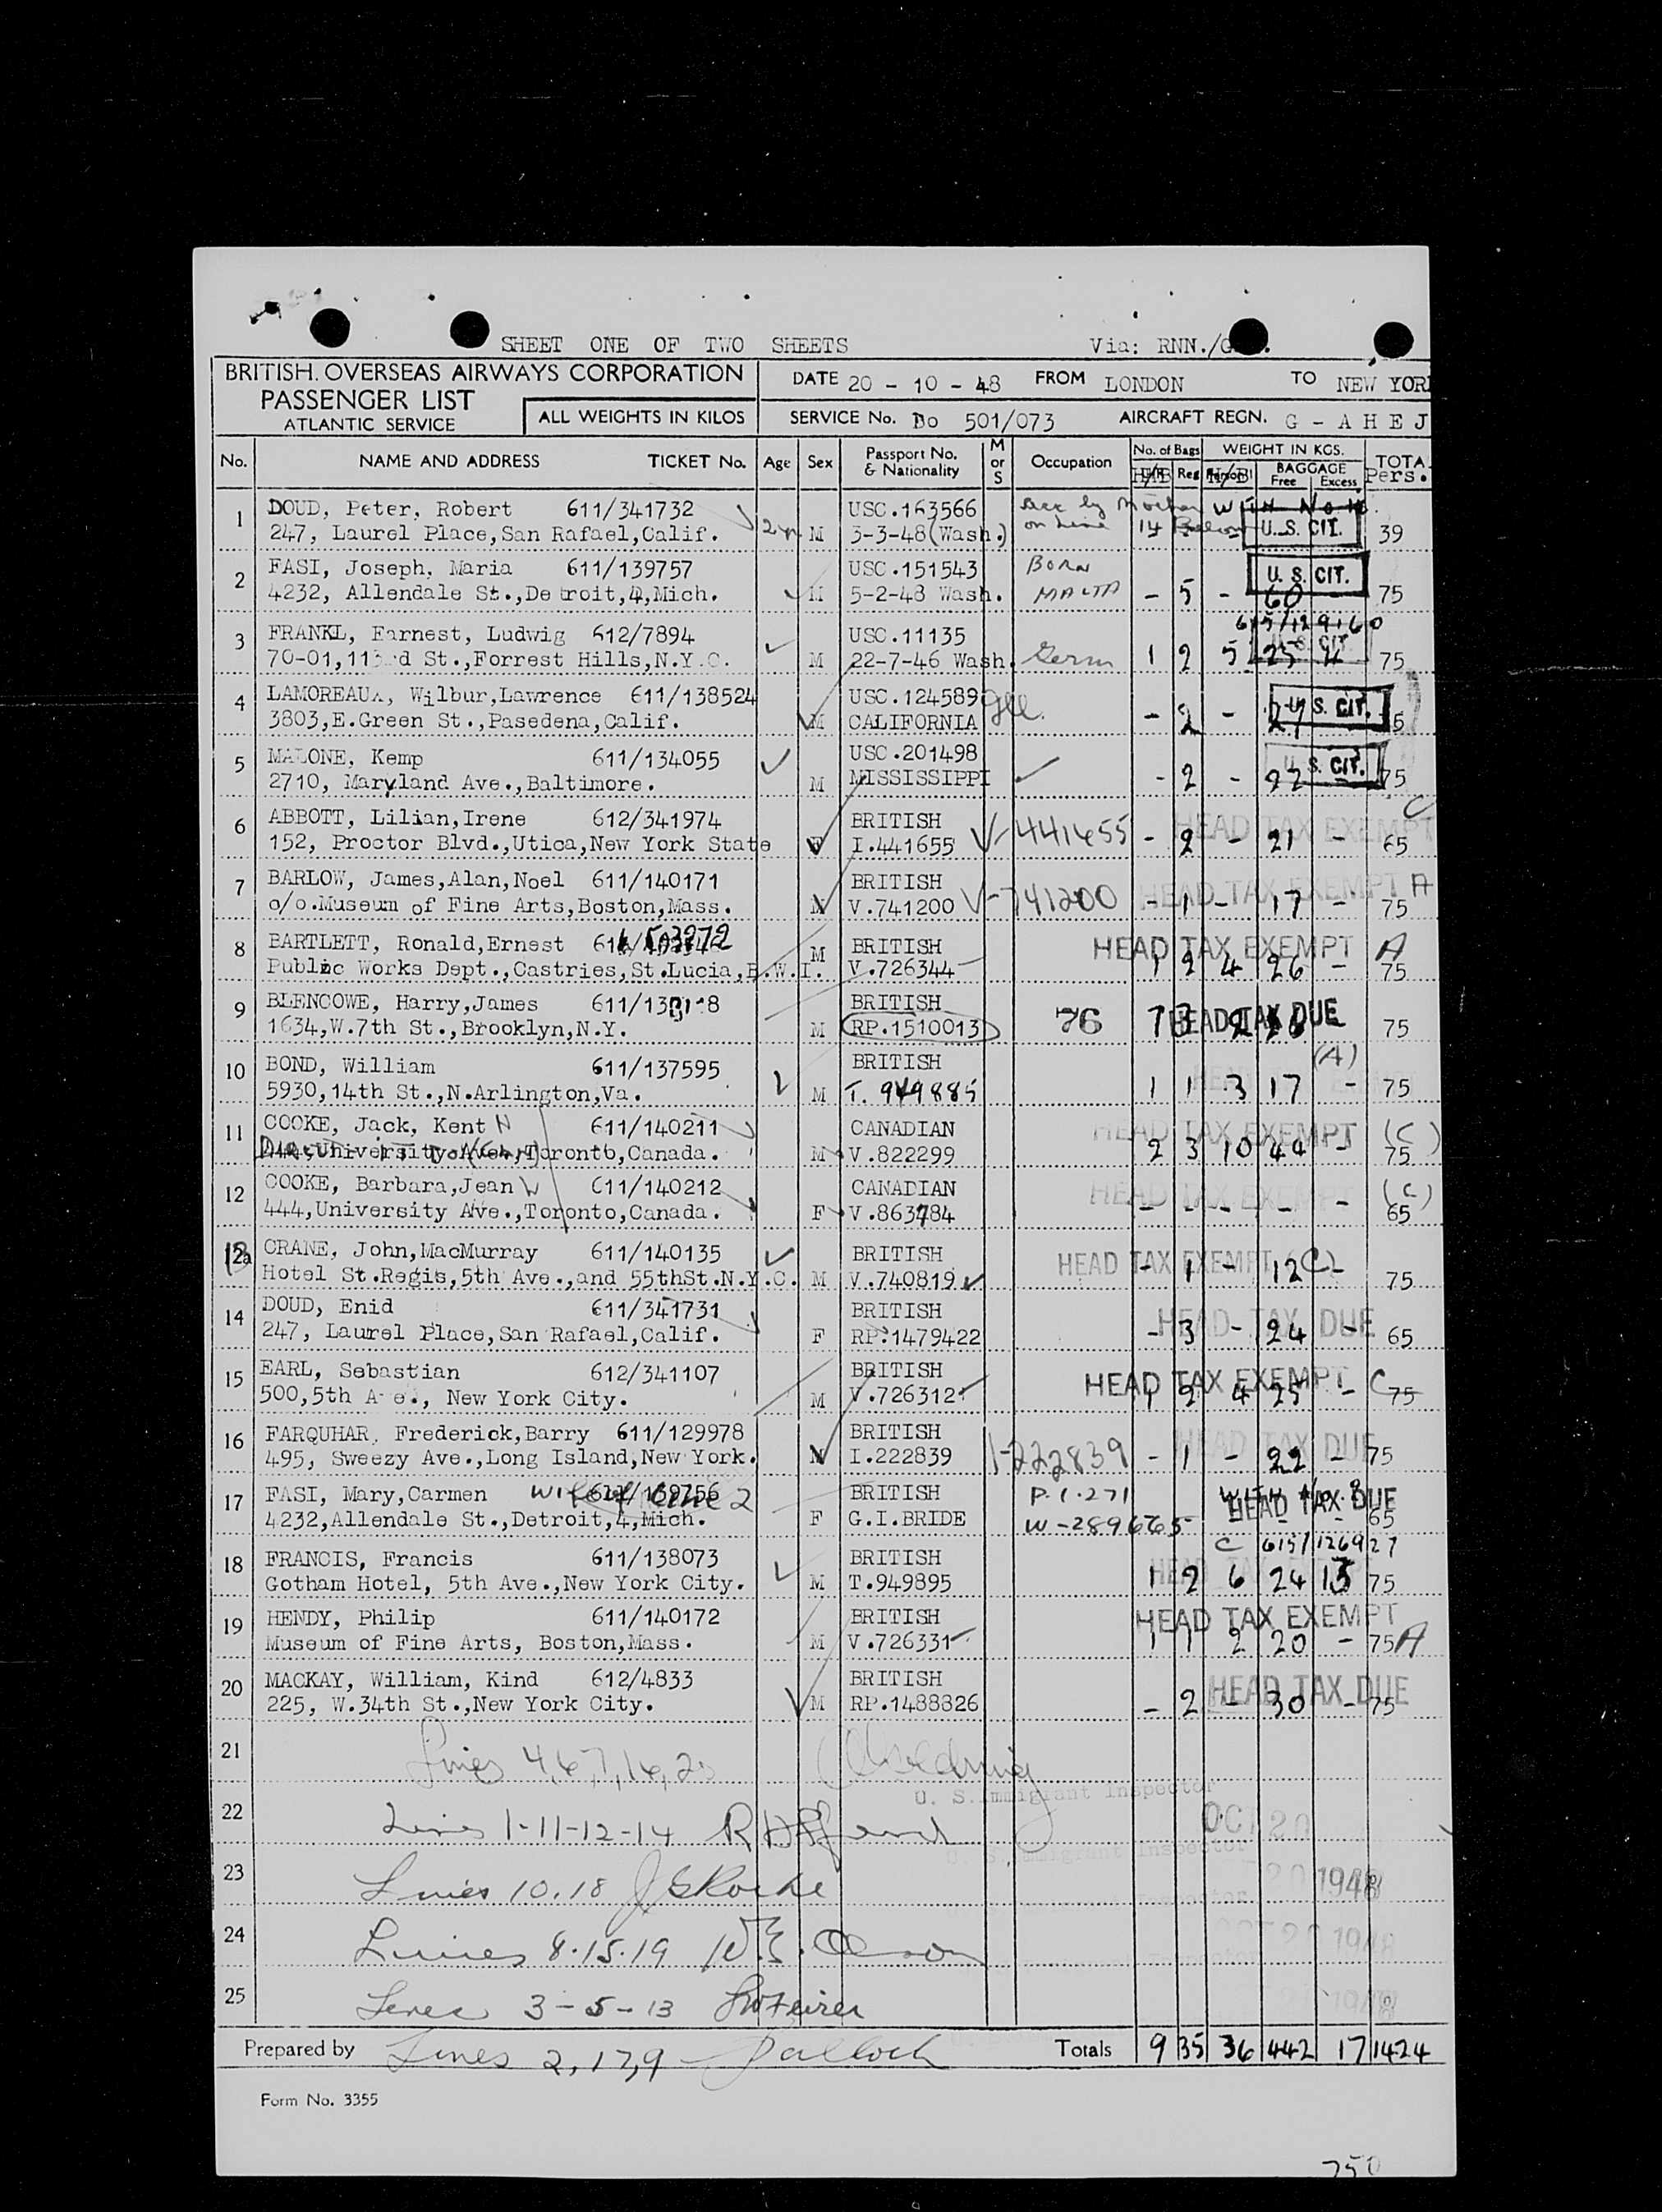 SHEET ONE OF TWO SHEETS Via: RNN./G
BRITISH OVERSEAS AIRWAYS CORPORATION
PASSENGER LIST
ATLANTIC SERVICE
ALL WEIGHTS IN KILOS
DATE 20 - 10 - 48 FROM LONDON TO NEW YORK
SERVICE No. Do 501/073 AIRCRAFT REGN. G - A H E J
No. NAME AND ADDRESS TICKET No. Age Sex Passport No. & Nationality M or S Occupation No. of Bags Reg WEIGHT IN KGS. BAGGAGE Free Excess TOTA Pers.
1 DOUD, Peter, Robert 611/341732 USC.163566 by Mother with No 14
247, Laurel Place,San Rafael,Calif. M 3-3-48(Wash.) on line 14 Below U.S. CIT. 39
2 FASI, Joseph, Maria 611/139757 USC.151543 BORN U. S. CIT.
4232, Allendale St.,Detroit,4,Mich. M 5-2-48 Wash. MALTA - 5 - 60 75
3 FRANKL, Earnest, Ludwig 612/7894 USC.11135 615/129160
70-01,113rd St.,Forrest Hills,N.Y.C. M 22-7-46 Wash. Germ 1 2 5 25 4 U.S. CIT. 75
4 LAMOREAUX, Wilbur,Lawrence 611/138524 USC.124589
3803,E.Green St.,Pasedena,Calif. M CALIFORNIA - 2 - 27 U. S. CIT. 75
5 MALONE, Kemp 611/134055 USC.201498
2710, Maryland Ave.,Baltimore. M MISSISSIPPI - 2 - 22 U. S. CIT. 75
6 ABBOTT, Lilian,Irene 612/341974 BRITISH HEAD TAX EXEMPT C
152, Proctor Blvd.,Utica,New York State F I.441655 V-441455 - 2 - 21 - 65
7 BARLOW, James,Alan,Noel 611/140171 BRITISH HEAD TAX EXEMPT A
c/o.Museum of Fine Arts,Boston,Mass. M V.741200 V-741200 - 1 - 17 - 75
8 BARTLETT, Ronald,Ernest M BRITISH HEAD TAX EXEMPT A
Public Works Dept.,Castries,St.Lucia,B.W.I. V.726344 1 2 4 26 - 75
9 BLENCOWE, Harry,James BRITISH HEAD TAX DUE
1634,W.7th St.,Brooklyn,N.Y. M RP.1510013 76 75
10 BOND, William 611/137595 BRITISH (A)
5930,14th St.,N.Arlington,Va. M T. 949885 1 1 3 17 - 75
11 COOKE, Jack, Kent 611/140211 CANADIAN HEAD TAX EXEMPT (C)
University Ave.,Toronto,Canada. M V.822299 2 3 10 44 - 75
12 COOKE, Barbara,Jean 611/140212 CANADIAN HEAD TAX EXEMPT (C)
444,University Ave.,Toronto,Canada. F V.863784 - - - - - 65
12a 13 CRANE, John,MacMurray 611/140135 BRITISH HEAD TAX EXEMPT (C)
Hotel St.Regis,5th Ave.,and 55thSt.N.Y.C. M V.740819 - 1 - 12 - 75
14 DOUD, Enid 611/341731 BRITISH HEAD TAX DUE
247, Laurel Place,San Rafael,Calif. F RP.1479422 - 3 - 24 - 65
15 EARL, Sebastian 612/341107 BRITISH HEAD TAX EXEMPT C
500,5th Ave., New York City. M V.726312 1 2 4 25 - 75
16 FARQUHAR, Frederick,Barry 611/129978 BRITISH HEAD TAX DUE
495, Sweezy Ave.,Long Island,New York. M I.222839 I-222839 - 1 - 22 - 75
17 FASI, Mary,Carmen 611/139756 wife of line 2 BRITISH P.1.271 WITH No. 2 HEAD TAX DUE
4232,Allendale St.,Detroit,4,Mich. F G.I.BRIDE W-289665 - - - 65
18 FRANCIS, Francis 611/138073 BRITISH C 615/126927
Gotham Hotel, 5th Ave.,New York City. M T.949895 1 2 6 24 13 75
19 HENDY, Philip 611/140172 BRITISH HEAD TAX EXEMPT
Museum of Fine Arts, Boston,Mass. M V.726331 1 1 2 20 - 75 A
20 MACKAY, William, Kind 612/4833 BRITISH HEAD TAX DUE
225, W.34th St.,New York City. M RP.1488826 - 2 - 30 - 75
21 Lines 4,6,7,16,20
U. S. Immigrant Inspector
22 Lines 1-11-12-14 OCT 20
U. S. Immigrant Inspector
23 Lines 10.18 20 1948
24 Lines 8.15.19 OCT 20 1948
25 Lines 3-5-13
Prepared by Lines 2,17,9 Totals 9 35 36 442 17 1424
Form No. 3355
750